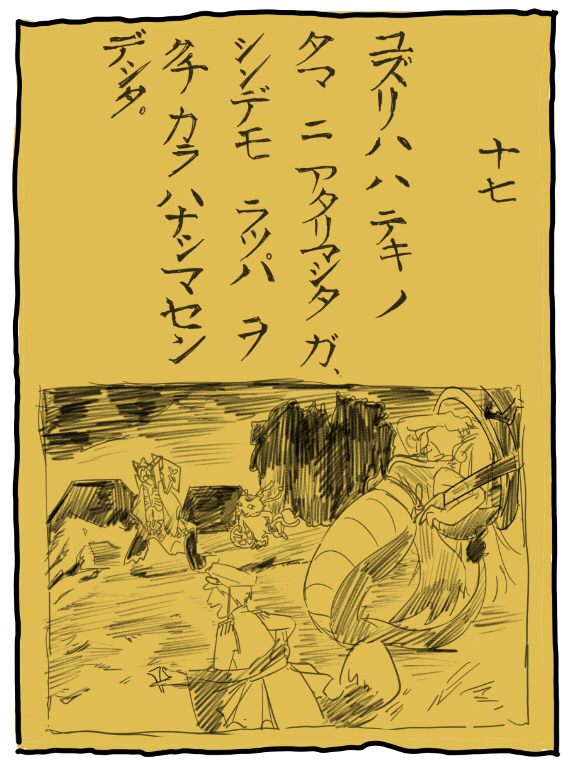 十七
ユズリハハ テキ ノ
タマ ニ アタリマシタ ガ、
シンデモ ラッパ ヲ
クチ カラ ハナシマセン
デシタ。